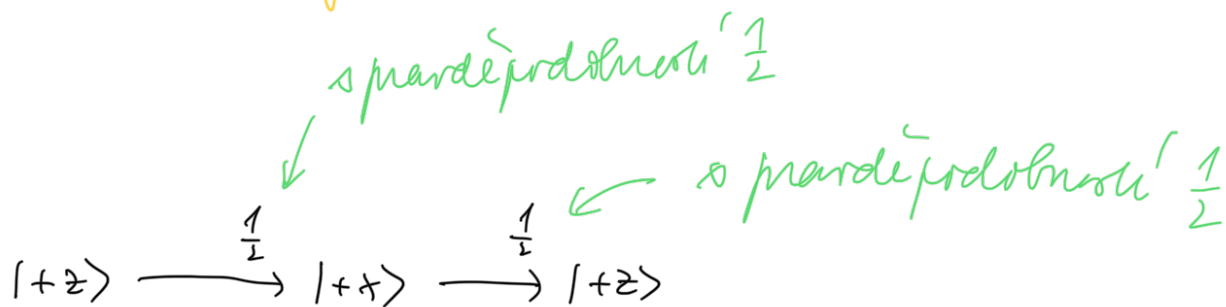 s pravděpodobností 1/2
s pravděpodobností 1/2
1/2 1/2
|+z⟩ ⟶ |+x⟩ ⟶ |+z⟩